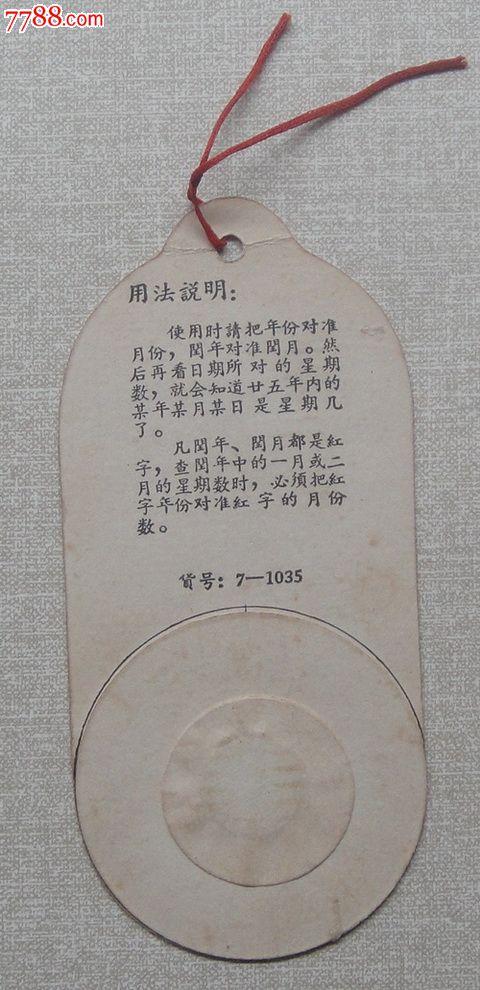 7788.com
用法説明：
使用时請把年份对准
月份，閏年对准閏月。然
后再看日期所对的星期
数，就会知道廿五年内的
某年某月某日是星期几
了。
凡閏年、閏月都是紅
字，查閏年中的一月或二
月的星期数时，必須把紅
字年份对准紅字的月份
数。
貨号：7—1035